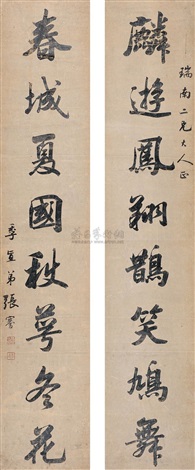 瑞南二兄大人正
麟遊鳳翔鵲笑鳩舞
春城夏國秋萼冬花
季直弟張謇